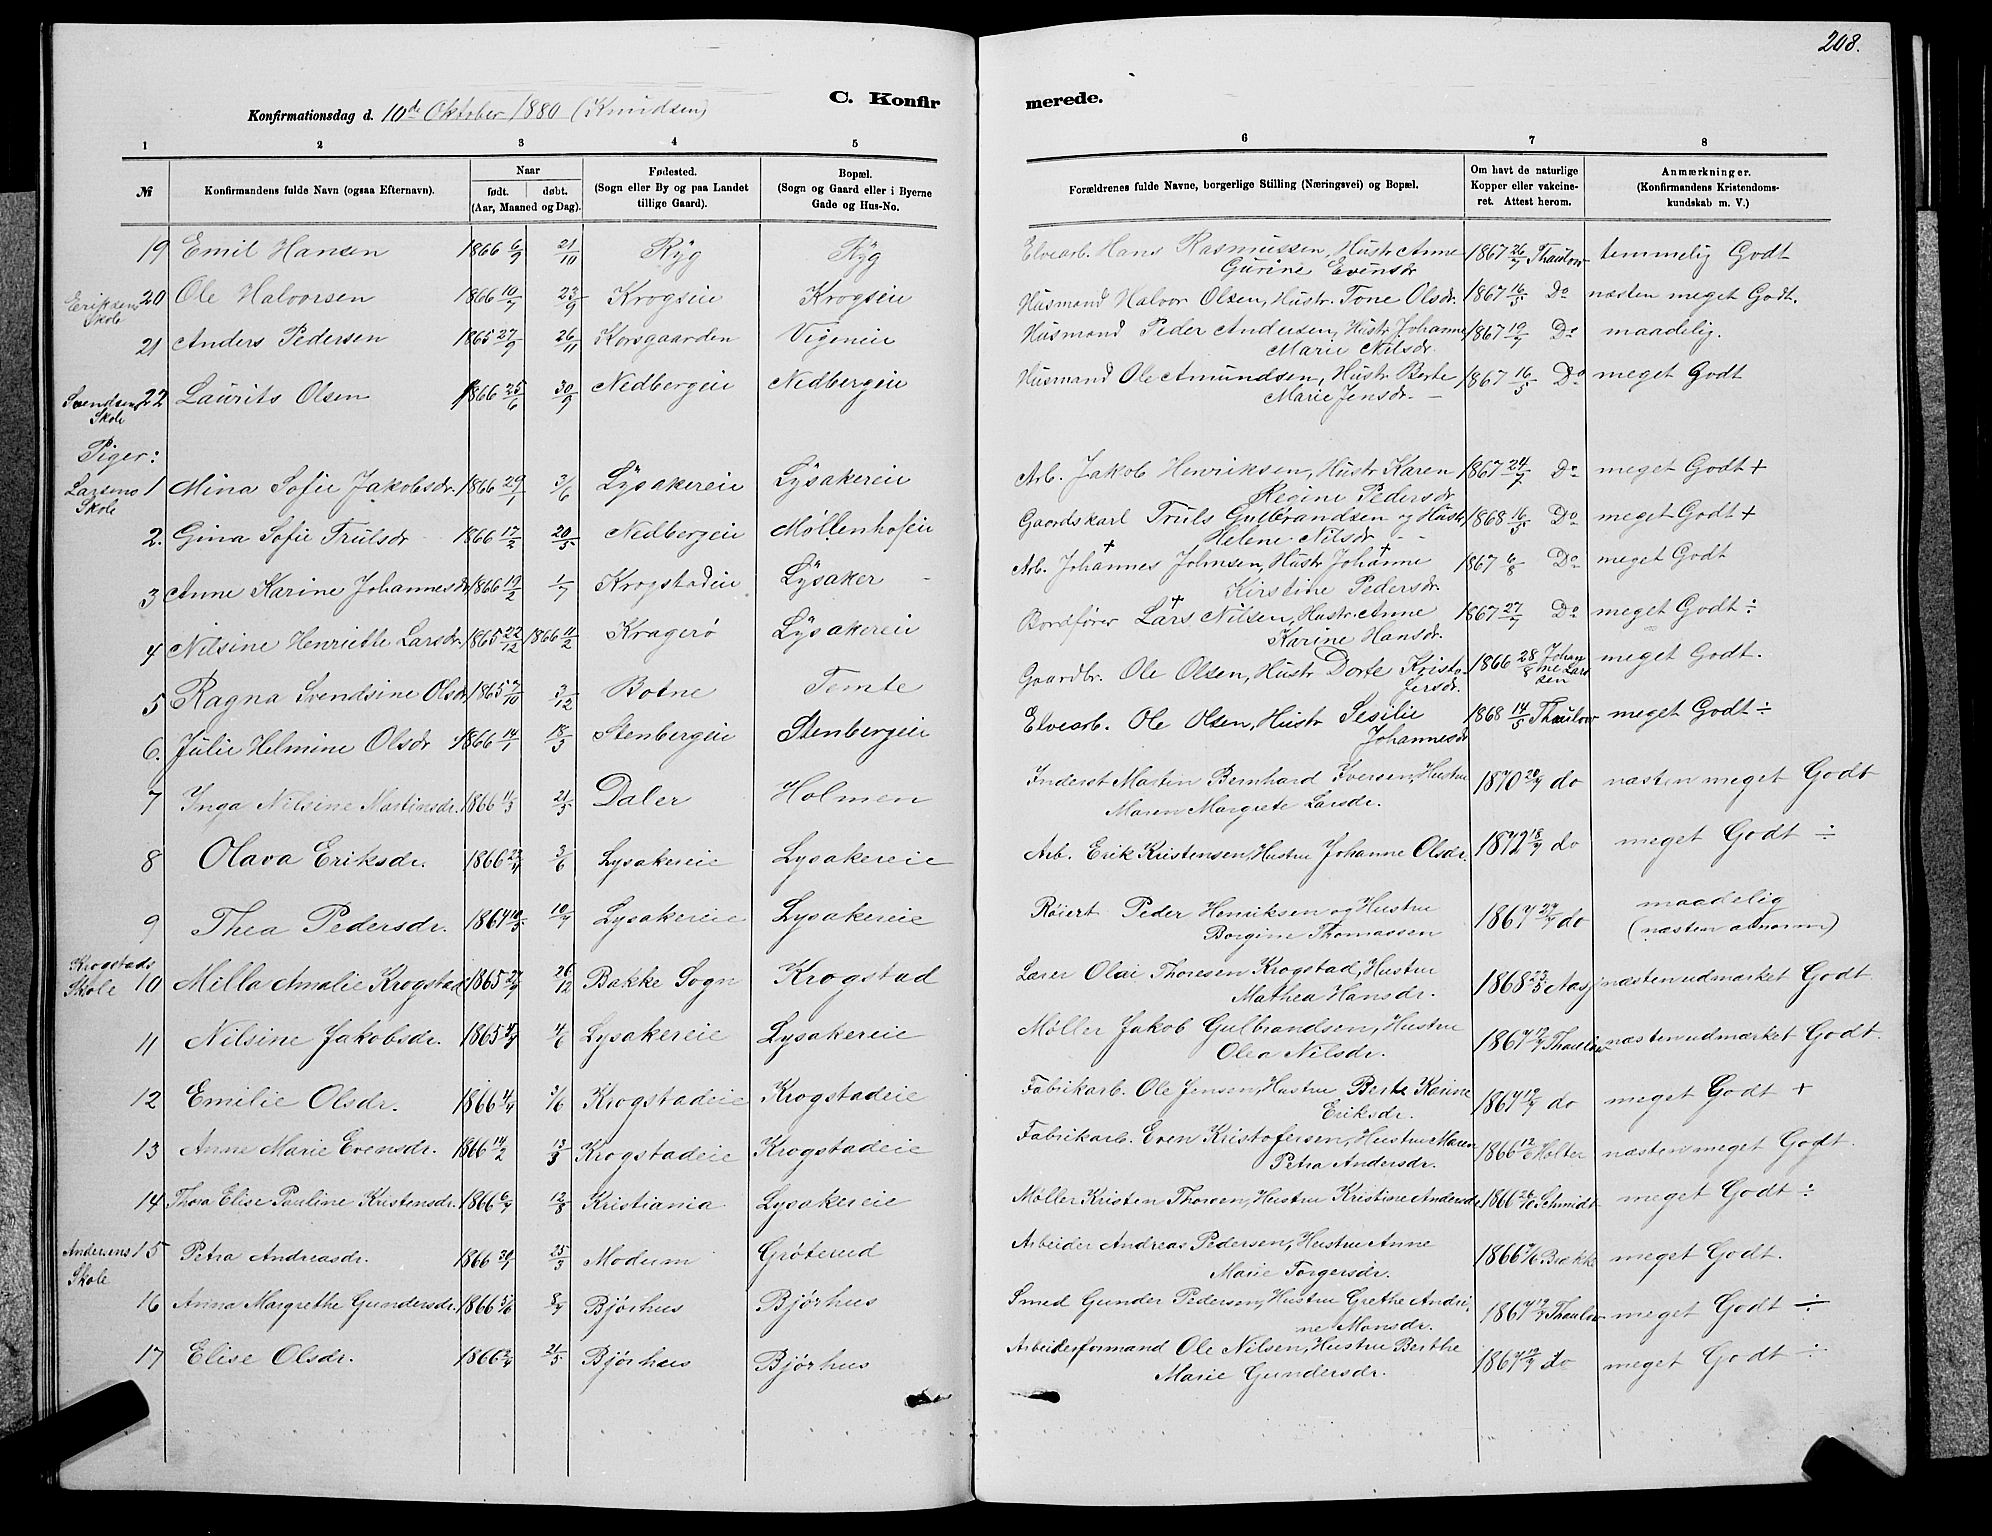 208.
C. Konfirmerede.
Konfirmationsdag d. 10de Oktober 1880 (Knudsen)
1 2 3 4 5 6 7 8
№
Konfirmandens fulde Navn (ogsaa Efternavn).
Naar
født. døbt.
(Aar, Maaned og Dag).
Fødested.
(Sogn eller By og paa Landet
tillige Gaard).
Bopæl.
(Sogn og Gaard eller i Byerne
Gade og Hus-No.
Forældrenes fulde Navne, borgerlige Stilling (Næringsvei) og Bopæl.
Om havt de naturlige
Kopper eller vakcine-
ret. Attest herom.
Anmærkninger.
(Konfirmandens Kristendoms-
kundskab m. V.)
19 Emil Hansen 1866 6/9 21/10 Ryg Ryg Elvearb. Hans Rasmussen, Hustr Anne 1867 26/7 Thaulow temmelig Godt
Gurine Evensdr
Eriksens Skole
20 Ole Halvorsen 1866 10/7 23/9 Krogseie Krogseie Husmand Halvor Olsen, Hustr. Tone Olsdr. 1867 16/5 Do næsten meget Godt.
21 Anders Pedersen 1865 27/9 26/11 Korsgaarden Vigeneie Husmand Peder Andersen, Hustr Johanne 1867 19/7 Do maadelig.
Marie Nilsdr.
Svendsens Skole
22 Laurits Olsen 1866 25/6 30/9 Nedbergeie Nedbergeie Husmand Ole Amundsen, Hustr Berte 1867 16/5 Do meget Godt
Marie Jensdr. -
Piger:
Larsens Skole
1 Mina Sofie Jakobsdr. 1866 29/1 3/6 Lysakereie Lysakereie Arb. Jakob Henriksen, Hustr Karen 1867 24/7 Do meget Godt +
Regine Pedersdr
2. Gina Sofie Trulsdr 1866 17/2 20/5 Nedbergeie Møllenhofeie Gaardskarl Truls Gulbrandsen og Hustr 1868 16/5 Do meget Godt +
Helene Nilsdr - -
3 Anne Karine Johannesdr 1866 19/2 1/7 Krogstadeie Lysaker - Arb. Johannes Johnsen, Hustr Johanne 1867 6/8 Do meget Godt
Kirstine Pedersdr.
4 Nilsine Henriette Larsdr. 1865 22/12 1866 11/2 Kragerø Lysakereie Bordfører Lars Nilsen, Hustr. Anne 1867 27/7 Do meget Godt ÷
Karine Hansdr.
5 Ragna Svendsine Olsdr 1865 7/10 3/12 Botne Temte Gaardbr. Ole Olsen, Hustr Dorte Kristo- 1866 28/8 Johanne Larssen meget Godt.
fersdr.
6. Julie Helmine Olsdr 1866 14/1 18/3 Stenbergeie Stenbergeie Elvearb. Ole Olsen, Hustr Sesilie 1868 14/5 Thaulow meget Godt ÷
Johannesdr
7 Inga Nilsine Martinsdr. 1866 11/3 21/5 Daler Holmen Inderst Martin Bernhard Iversen, Hustru 1870 20/7 do næsten meget Godt
Maren Margrete Larsdr.
8 Olava Eriksdr. 1866 23/4 3/6 Lysakereie Lysakereie Arb. Erik Kristensen, Hustru Johanne Olsdr. 1872 18/7 do meget Godt ÷
9 Thea Pedersdr. 1864 10/5 10/7 Lysakereie Lysakereie Røiert Peder Henriksen og Hustru 1867 27/7 do maadelig
Borgine Thomassen (næsten abnorm)
Krogstads Skole
10 Milla Amalie Krogstad 1865 27/9 26/12 Bakke Sogn Krogstad Lærer Olai Thoresen Krogstad, Hustru 1868 23/5 Aas næsten udmærket Godt
Mathea Hansdr.
11 Nilsine Jakobsdr. 1865 Lysakereie Lysakereie Møller Jakob Gulbrandsen, Hustru 1867 Thaulow næsten udmærket Godt.
Olea Nilsdr.
12 Emilie Olsdr. 1866 4/4 3/6 Krogstadeie Krogstadeie Fabrikarb. Ole Jensen, Hustru Berte Karine 1867 19/7 do meget Godt +
Eriksdr.
13 Anne Marie Evensdr. 1866 14/2 13/3 Krogstadeie Krogstadeie Fabrikarb. Even Kristofersen, Hustru Maren 1866 12/6 Holter næsten meget Godt.
Petra Andersdr.
14 Thea Elise Pauline Kristensdr. 1866 6/7 12/8 Kristiania Lysakereie Møller Kristen Thoresen, Hustru Kristine Andersdr 1866 26/6 Schmidt meget Godt ÷
Andersens Skole
15 Petra Andreasdr. 1866 25/3 Modum Grøterud Arbeider Andreas Pedersen, Hustru Anne 1866 Bakke meget Godt.
Marie Torgersdr.
16 Anna Margrethe Gundersdr. 1866 5/6 8/7 Bjørhus Bjørhus Smed Gunder Pedersen, Hustru Grethe Andri- 1867 19/7 Thaulow meget Godt ÷
ne Monsdr.
17 Elise Olsdr. 1866 21/5 Bjørhus Bjørhus Arbeiderformand Ole Nilsen, Hustru Berthe 1867 19/7 do meget Godt ÷
Marie Gundersdr.